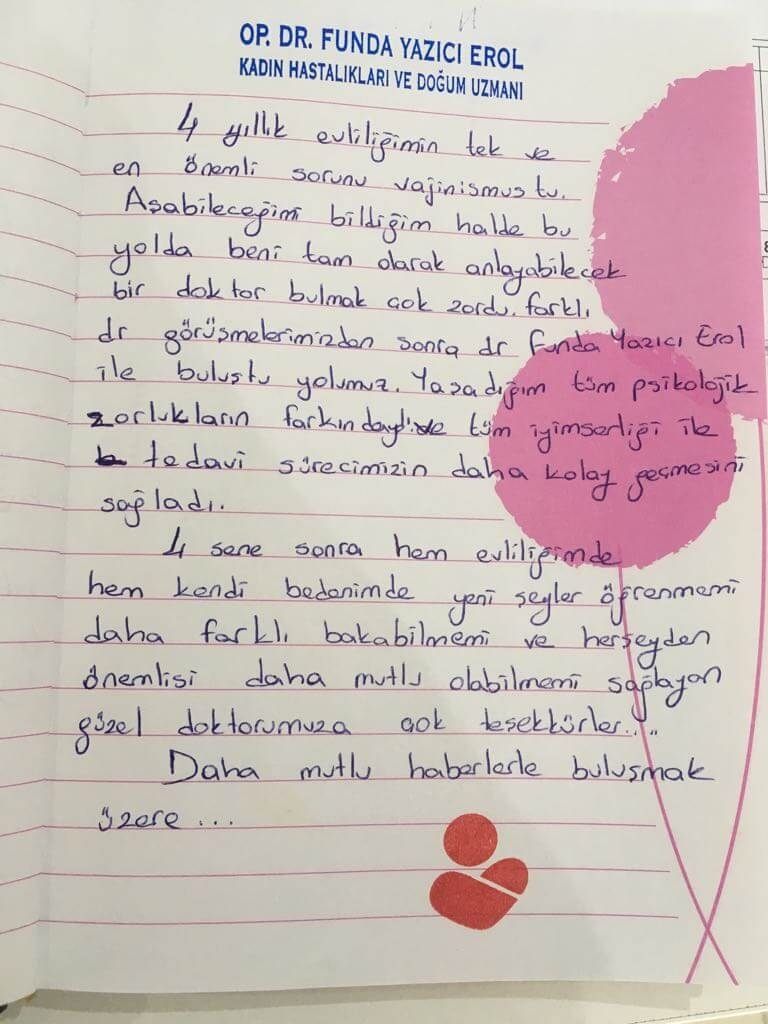 OP. DR. FUNDA YAZICI EROL
KADIN HASTALIKLARI VE DOĞUM UZMANI
4 yıllık evliliğimin tek ve
en önemli sorunu vajinismustu.
Aşabileceğimi bildiğim halde bu
yolda beni tam olarak anlayabilecek
bir doktor bulmak çok zordu. farklı
dr görüşmelerimizden sonra dr Funda Yazıcı Erol
ile buluştu yolumuz. Yaşadığım tüm psikolojik
zorlukların farkındaydı ve tüm iyimserliği ile
tedavi sürecimizin daha kolay geçmesini
sağladı.
4 sene sonra hem evliliğimde
hem kendi bedenimde yeni şeyler öğrenmemi
daha farklı bakabilmemi ve herşeyden
önemlisi daha mutlu olabilmemi sağlayan
güzel doktorumuza çok teşekkürler....
Daha mutlu haberlerle buluşmak
üzere ...